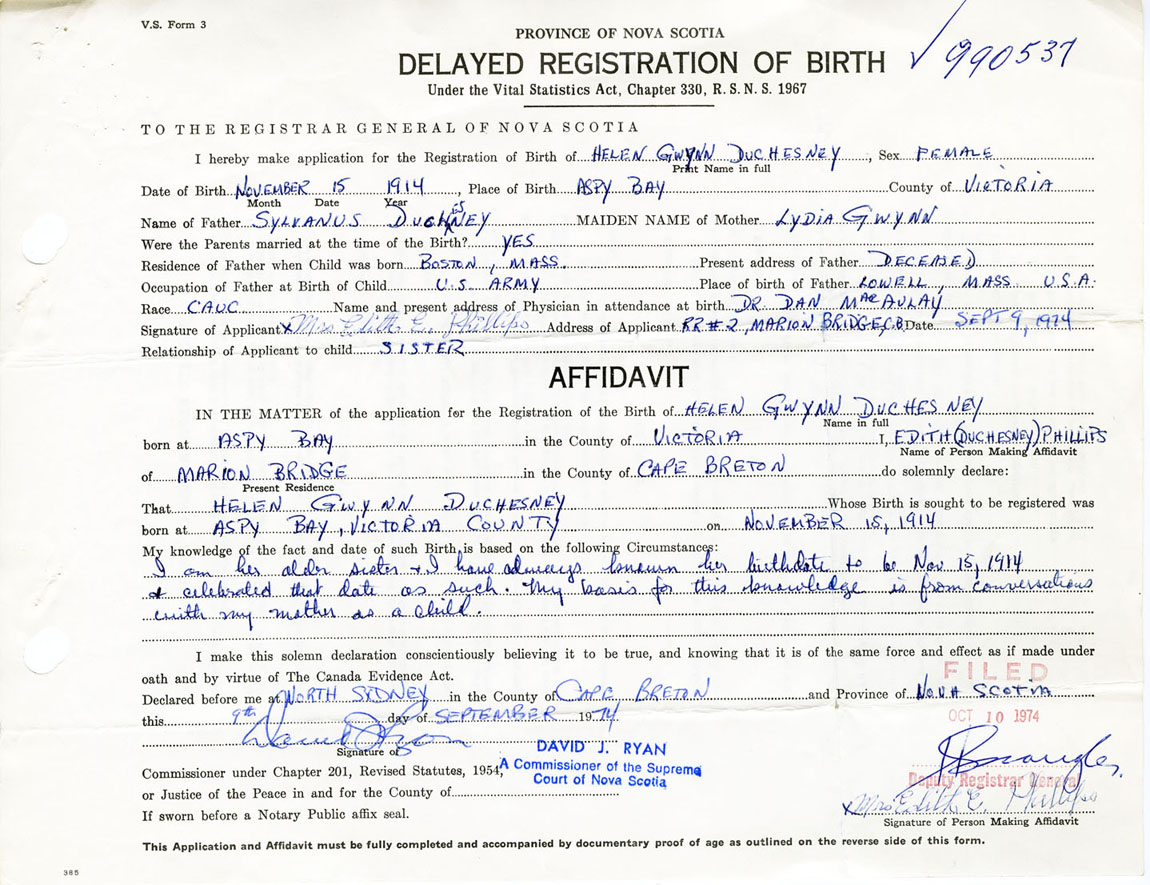 V.S. Form 3
PROVINCE OF NOVA SCOTIA
DELAYED REGISTRATION OF BIRTH
✓ 990537
Under the Vital Statistics Act, Chapter 330, R. S. N. S. 1967
TO THE REGISTRAR GENERAL OF NOVA SCOTIA
I hereby make application for the Registration of Birth of HELEN GWYNN DUCHESNEY, Sex FEMALE
Print Name in full
Date of Birth NOVEMBER 15 1914, Place of Birth ASPY BAY County of VICTORIA
Month Date Year
Name of Father SYLVANUS DUCHESNEY MAIDEN NAME of Mother LYDIA GWYNN
Were the Parents married at the time of the Birth? YES
Residence of Father when Child was born BOSTON, MASS. Present address of Father DECEASED
Occupation of Father at Birth of Child U.S. ARMY Place of birth of Father LOWELL, MASS. U.S.A.
Race CAUC Name and present address of Physician in attendance at birth DR. DAN MacAULAY
Signature of Applicant x Mrs Edith E. Phillips Address of Applicant RR#2, MARION BRIDGE, C.B. Date SEPT 9, 1974
Relationship of Applicant to child SISTER
AFFIDAVIT
IN THE MATTER of the application for the Registration of the Birth of HELEN GWYNN DUCHESNEY
Name in full
born at ASPY BAY in the County of VICTORIA I, EDITH (DUCHESNEY) PHILLIPS
Name of Person Making Affidavit
of MARION BRIDGE in the County of CAPE BRETON do solemnly declare:
Present Residence
That HELEN GWYNN DUCHESNEY Whose Birth is sought to be registered was
born at ASPY BAY, VICTORIA COUNTY on NOVEMBER 15, 1914
My knowledge of the fact and date of such Birth is based on the following Circumstances:
I am her older sister & I have always known her birthdate to be Nov 15, 1914
& celebrated that date as such. My basis for this knowledge is from conversations
with my mother as a child.
I make this solemn declaration conscientiously believing it to be true, and knowing that it is of the same force and effect as if made under
oath and by virtue of The Canada Evidence Act.
FILED
Declared before me at NORTH SYDNEY in the County of CAPE BRETON and Province of NOVA SCOTIA
this 9th day of SEPTEMBER 1974.
OCT 10 1974
Signature of
DAVID J. RYAN
A Commissioner of the Supreme
Court of Nova Scotia
Commissioner under Chapter 201, Revised Statutes, 1954,
Deputy Registrar General
or Justice of the Peace in and for the County of
x Mrs Edith E. Phillips
If sworn before a Notary Public affix seal.
Signature of Person Making Affidavit
This Application and Affidavit must be fully completed and accompanied by documentary proof of age as outlined on the reverse side of this form.
385